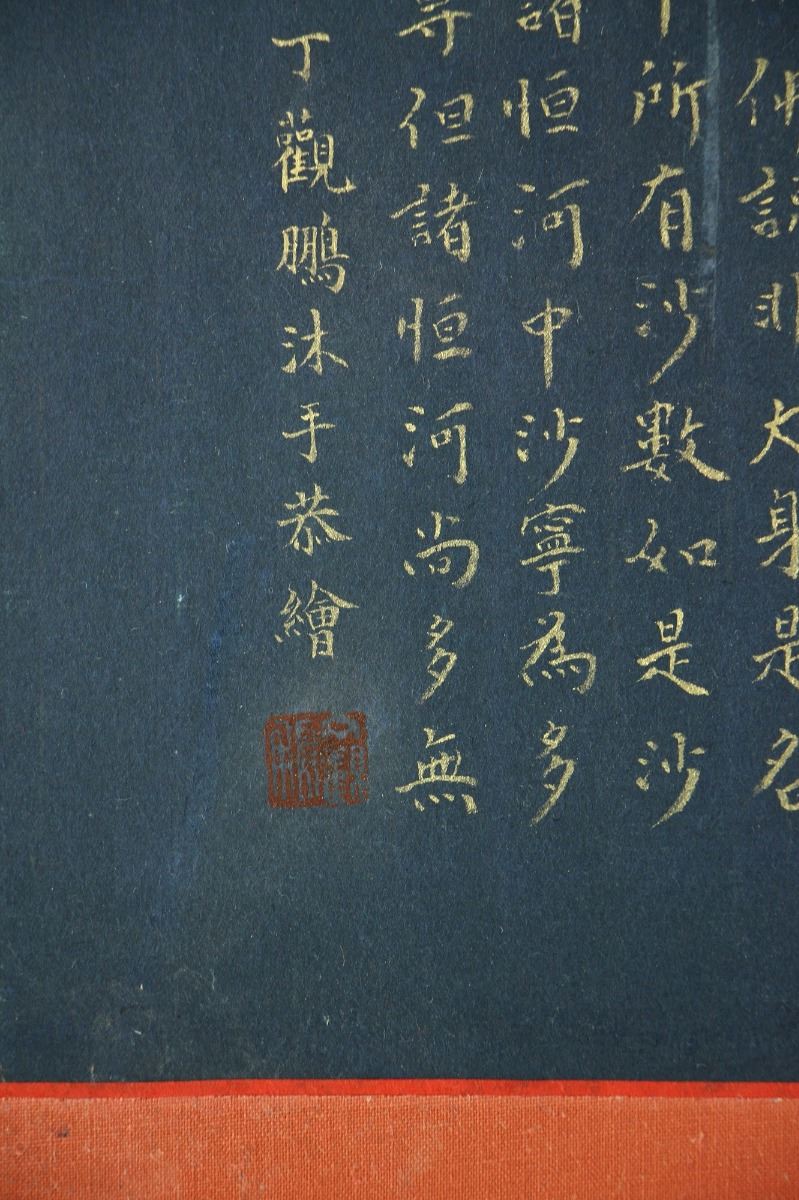 佛説非大身是名
所有沙數如是沙
諸恒河中沙寧為多
等但諸恒河尚多無
丁觀鵬沐手恭繪